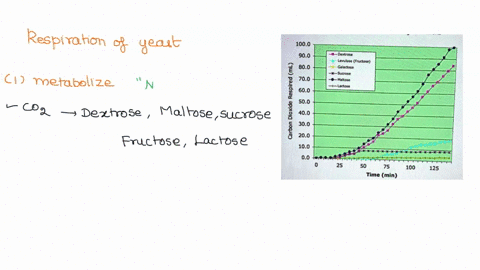 Respiration of yeast
(1) metabolize "N
- CO2 → Dextrose, Maltose, sucrose
Fructose, Lactose
100.0
90.0
80.0
70.0
60.0
50.0
40.0
30.0
20.0
10.0
0.0
Carbon Dioxide Respired (mL)
Dextrose
Levulose (Fructose)
Galactose
Sucrose
Maltose
Lactose
0 25 50 75 100 125
Time (min)